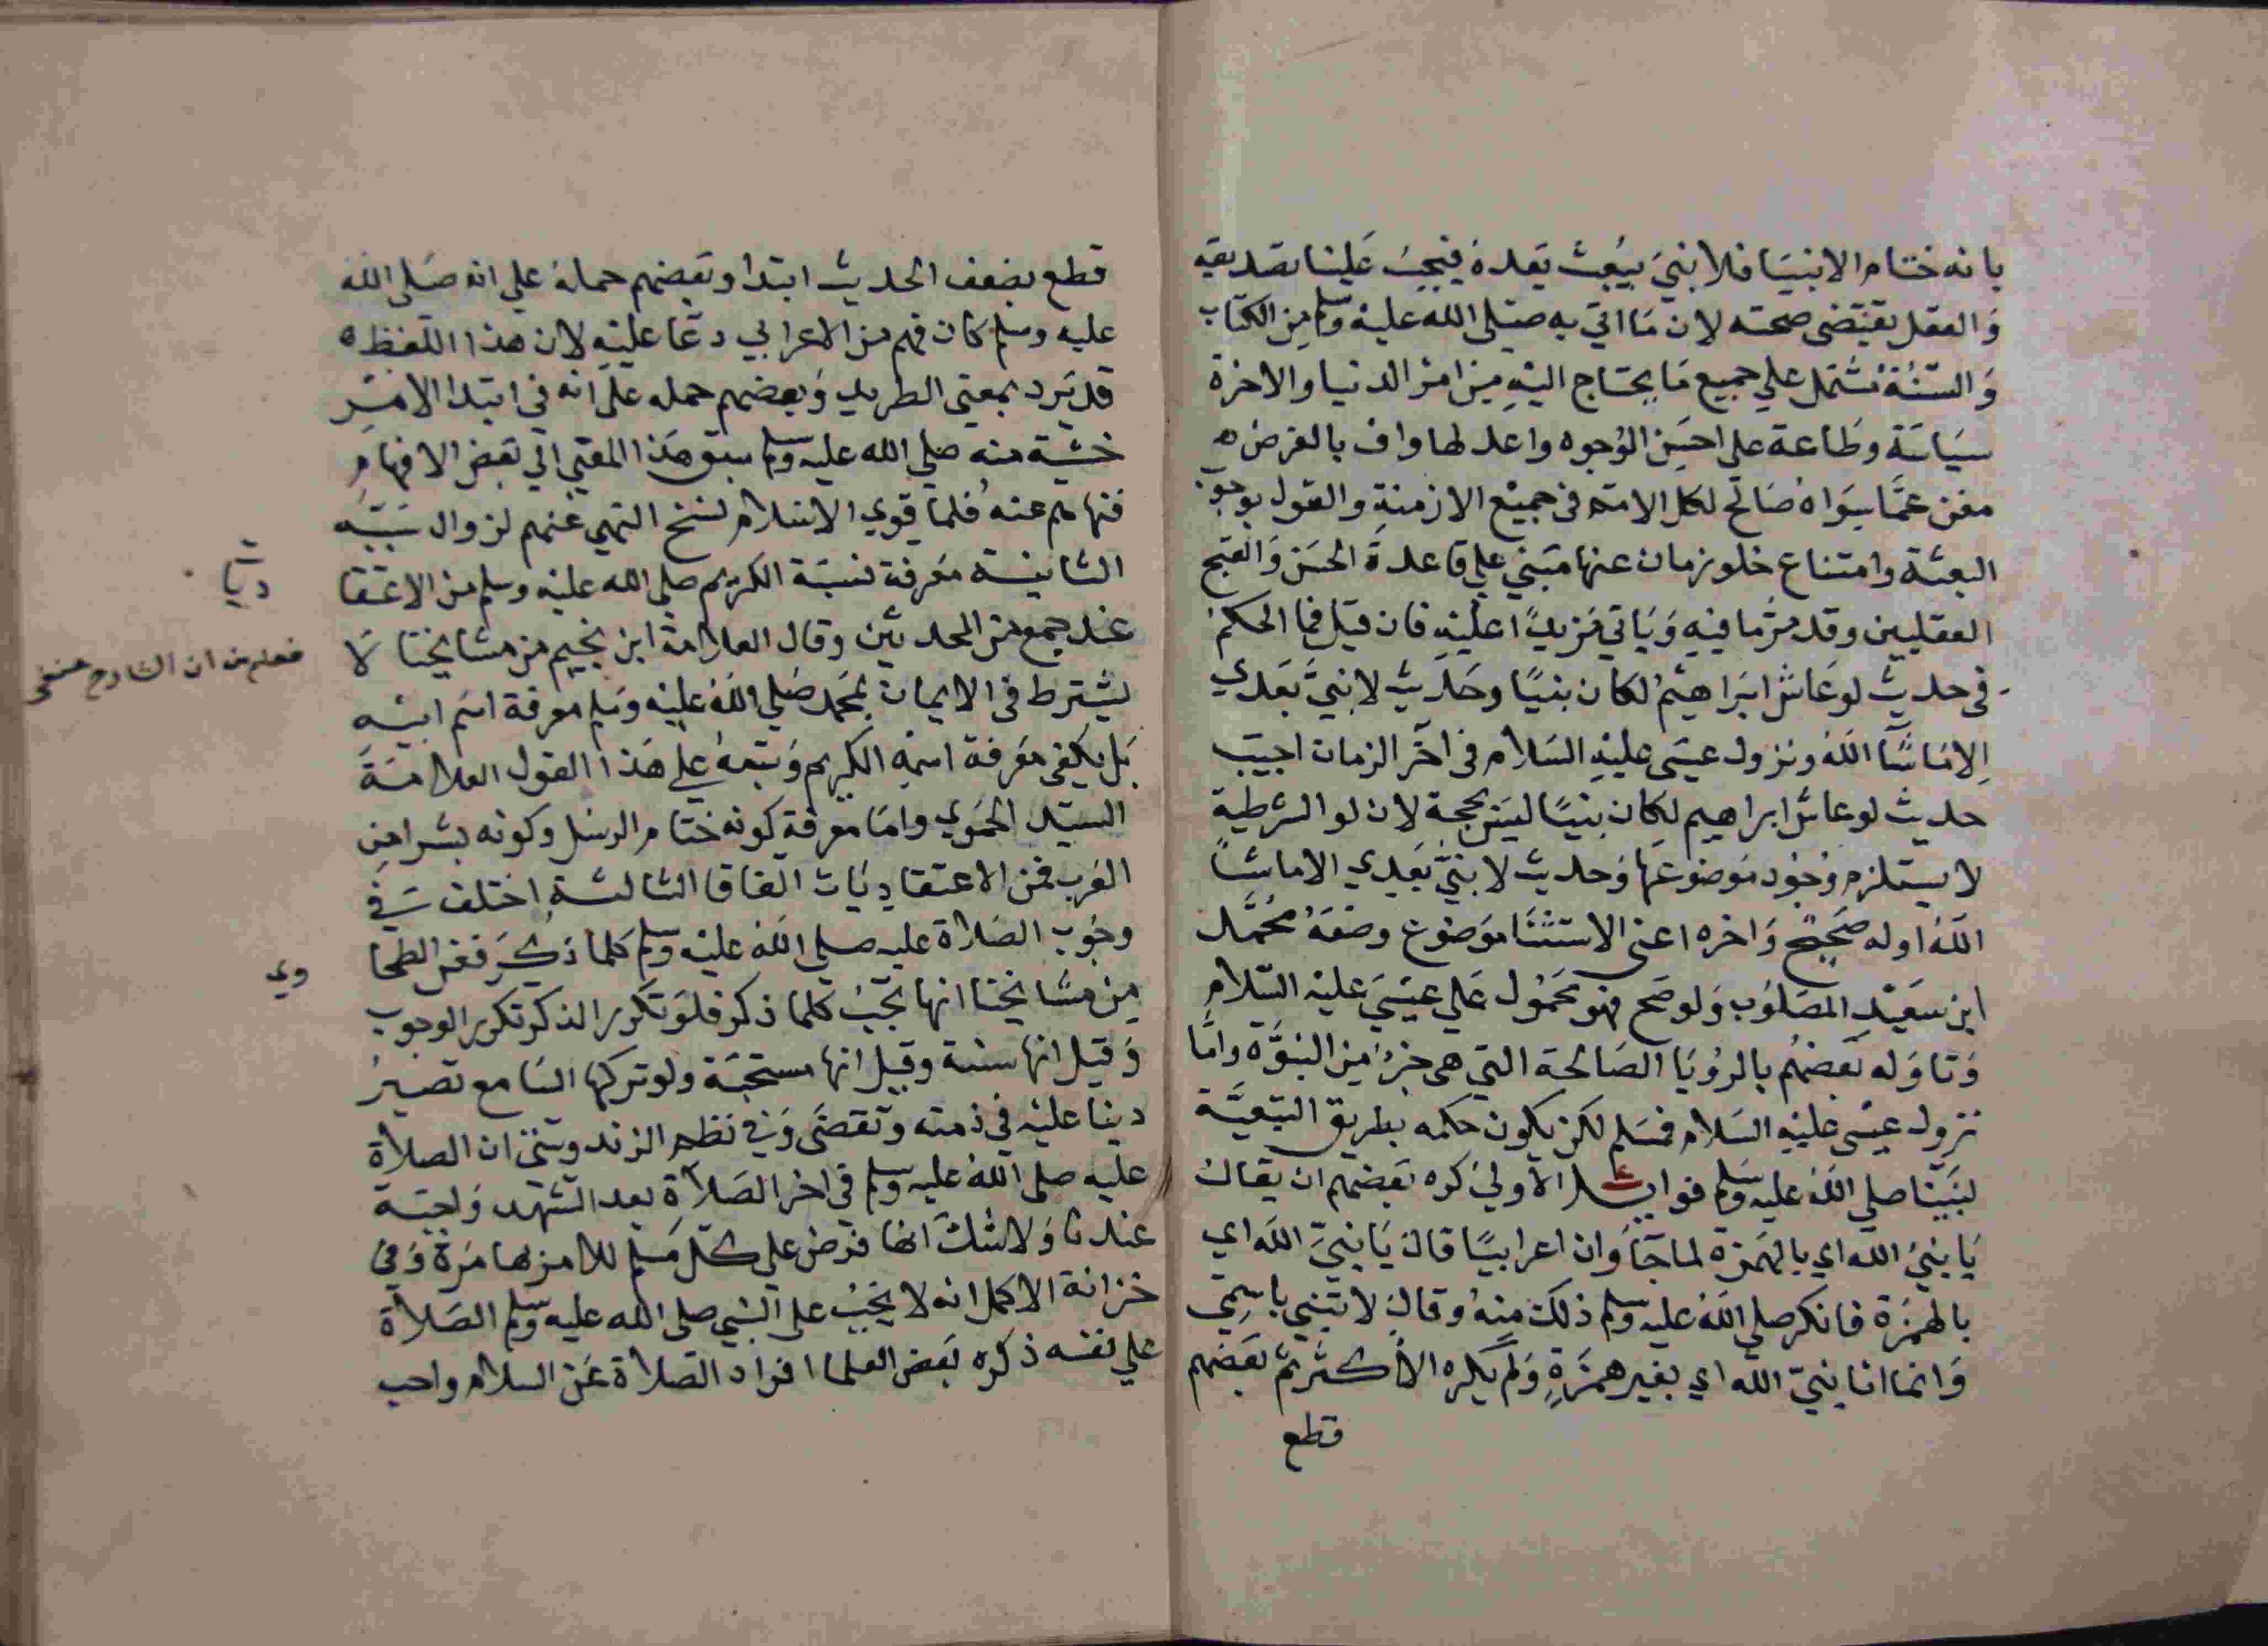 بانه ختام الانبيا فلا نبي يبعث بعده فيجب علينا تصديقه
والعقل يقتضي صحته لان ما اتي به صلى الله عليه وسلم من الكتاب
والسنة مشتمل علي جميع ما يحتاج اليه من امر الدنيا والاخرة
سياسة وطاعة على احسن الوجوه واعدلها واف بالغرض
مغن عما سواه صالح لكل الامة في جميع الازمنة والقول بوجوب
البعثة وامتناع خلو زمان عنها مبني علي قاعدة الحسن والقبح
العقليين وقد مر ما فيه وياتي مزيدا عليه فان قيل فما الحكم
في حديث لو عاش ابراهيم لكان نبيا وحديث لا نبي بعدي
الا ما شا الله ونزول عيسى عليه السلام في اخر الزمان اجيب
حديث لو عاش ابراهيم لكان نبيا ليس بحجة لان لو الشرطية
لا يستلزم وجود موضوعها وحديث لا نبي بعدي الا ما شا
الله اوله صحيح واخره اعني الاستثنا موضوع وضعه محمد
ابن سعيد المصلوب ولو صح فهو محمول علي عيسى عليه السلام
وتاوله بعضهم بالرؤيا الصالحة التي هي جزء من النبوة واما
نزول عيسى عليه السلام فمسلم لكن يكون حكمه بطريق التبعية
لنبينا صلي الله عليه وسلم فوايد الاولي كره بعضهم ان يقال
يا نبئ الله اي بالهمزة لما جآ وان اعرابيا قال يا نبيء الله اي
بالهمزة فانكر صلي الله عليه وسلم ذلك منه وقال لا تنبئ باسمي
وانما انا نبي الله اي بغير همزة ولم يكره الاكثر ثم بعضهم
قطع
قطع بضعف الحديث ابتدا وبعضهم حمله علي انه صلى الله
عليه وسلم كان فهم من الاعرابي دعا عليه لان هذا اللفظ
قد يرد بمعني الطريد وبعضهم حمله على انه في ابتدا الامر
خشية منه صلي الله عليه وسلم سبق هذا المعني الي بعض الافهام
فنهاهم عنه فلما قوي الاسلام نسخ النهي عنهم لزوال سببه
الثانية معرفة نسبة الكريم صلي الله عليه وسلم من الاعتقا
ديات
عند جمع من المحدثين وقال العلامة ابن نجيم من مشايخنا لا
فعلم من ان الشارح حنفي
يشترط في الايمان بمحمد صلي الله عليه وسلم معرفة اسم ابيه
بل يكفي معرفة اسمه الكريم وتبعه علي هذا القول العلامة
السيد الحموي واما معرفة كونه ختام الرسل وكونه بشرا من
العرب فمن الاعتقاديات اتفاقا الثالثة اختلف في
وجوب الصلاة عليه صلي الله عليه وسلم كلما ذكر فعن الطحا
وي
من مشايخنا انها تجب كلما ذكر فلو تكرر الذكر تكرر الوجوب
وقيل انها سنة وقيل انها مستحبة ولو تركها السامع تصير
دينا عليه في ذمته وتقضى وفي نظم الزندويستي ان الصلاة
عليه صلى الله عليه وسلم في اخر الصلاة بعد التشهد واجبة
عندنا ولا شك انها فرض علي كل مسلم للامر بها مرة وفي
خزانة الاكمل انه لا يجب على النبي صلى الله عليه وسلم الصلاة
علي نفسه ذكره بعض العلما افراد الصلاة عن السلام واجب